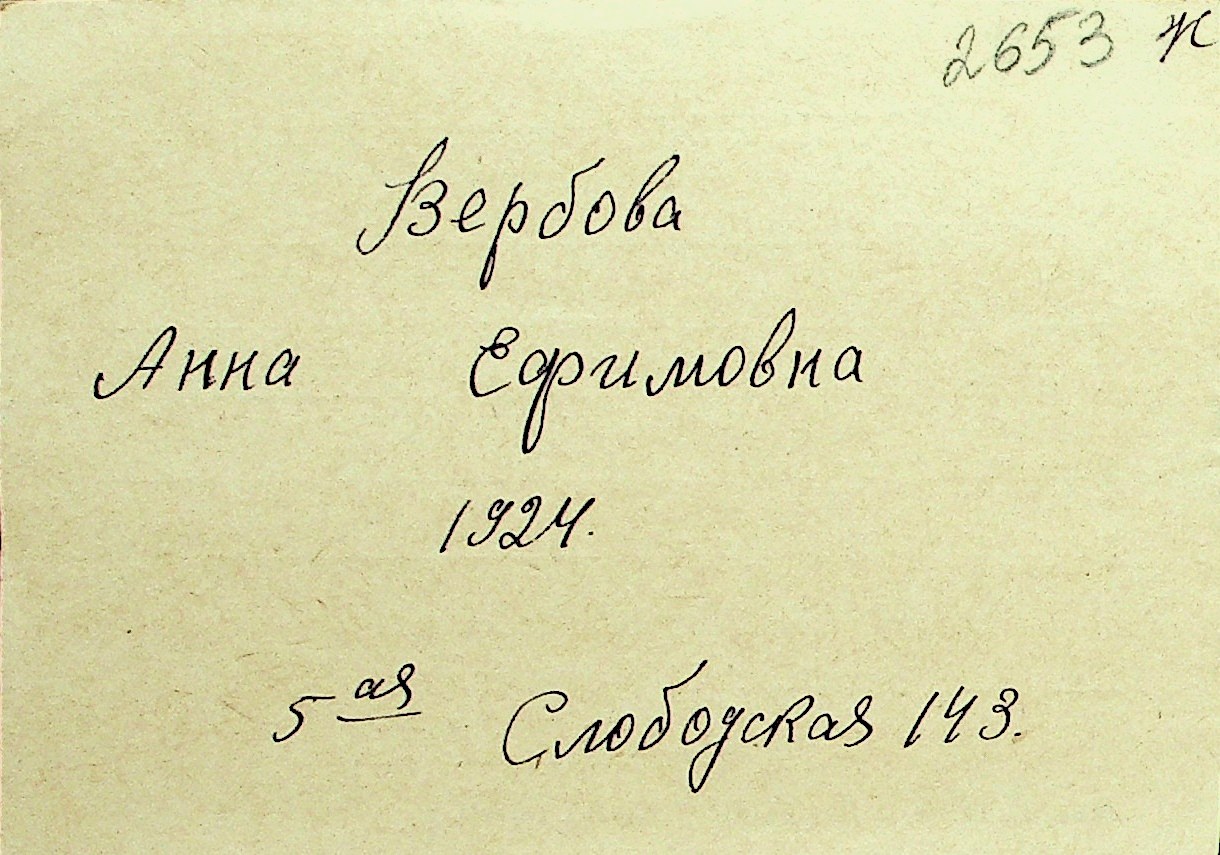 2653 ж
Вербова
Анна Ефимовна
1924.
5ая Слободская 143.